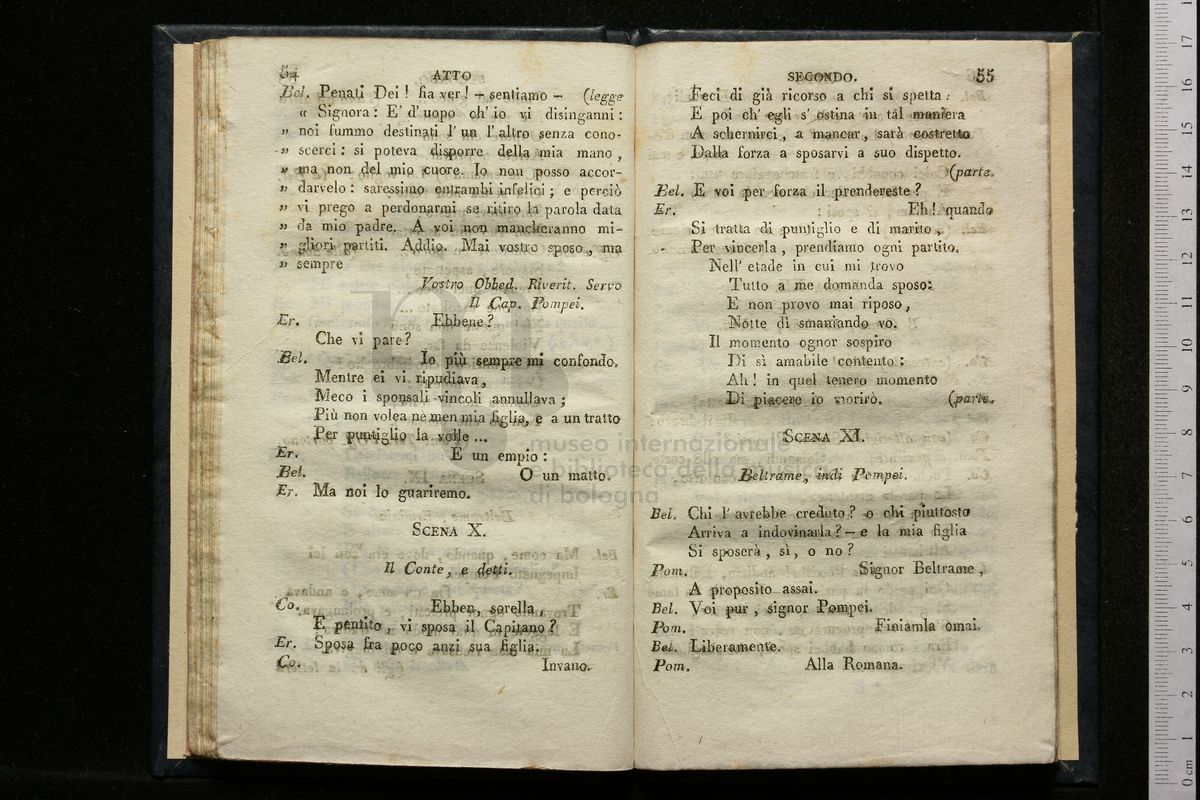 54 ATTO
Bel. Penati Dei! fia ver! — sentiamo — (legge
« Signora: E' d' uopo ch' io vi disinganni:
„ noi fummo destinati l' un l' altro senza cono-
„ scerci: si poteva disporre della mia mano,
„ ma non del mio cuore. Io non posso accor-
„ darvelo: saressimo entrambi infelici; e perciò
„ vi prego a perdonarmi se ritiro la parola data
„ da mio padre. A voi non mancheranno mi-
„ gliori partiti. Addio. Mai vostro sposo, ma
„ sempre
Vostro Obbed. Riverit. Servo
Il Cap. Pompei.
Er. Ebbene?
Che vi pare?
Bel. Io più sempre mi confondo.
Mentre ei vi ripudiava,
Meco i sponsali vincoli annullava;
Più non volea nè men mia figlia, e a un tratto
Per puntiglio la volle ...
Er. E un empio:
Bel. O un matto.
Er. Ma noi lo guariremo.
SCENA X.
Il Conte, e detti.
Co. Ebben, sorella,
E pentito, vi sposa il Capitano?
Er. Sposa fra poco anzi sua figlia.
Co. Invano.
SECONDO. 55
Feci di già ricorso a chi si spetta:
E poi ch' egli s' ostina in tal maniera
A schernirci, a mancar, sarà costretto
Dalla forza a sposarvi a suo dispetto.
(parte.
Bel. E voi per forza il prendereste?
Er. Eh! quando
Si tratta di puntiglio e di marito,
Per vincerla, prendiamo ogni partito.
Nell' etade in cui mi trovo
Tutto a me domanda sposo:
E non provo mai riposo,
Notte dì smaniando vo.
Il momento ognor sospiro
Di sì amabile contento:
Ah! in quel tenero momento
Di piacere io morirò. (parte.
SCENA XI.
Beltrame, indi Pompei.
Bel. Chi l' avrebbe creduto? o chi piuttosto
Arriva a indovinarla? — e la mia figlia
Si sposerà, sì, o no?
Pom. Signor Beltrame,
A proposito assai.
Bel. Voi pur, signor Pompei.
Pom. Finiamla omai.
Bel. Liberamente.
Pom. Alla Romana.
museo internazionale
e biblioteca della musica
di bologna
0 cm 1 2 3 4 5 6 7 8 9 10 11 12 13 14 15 16 17